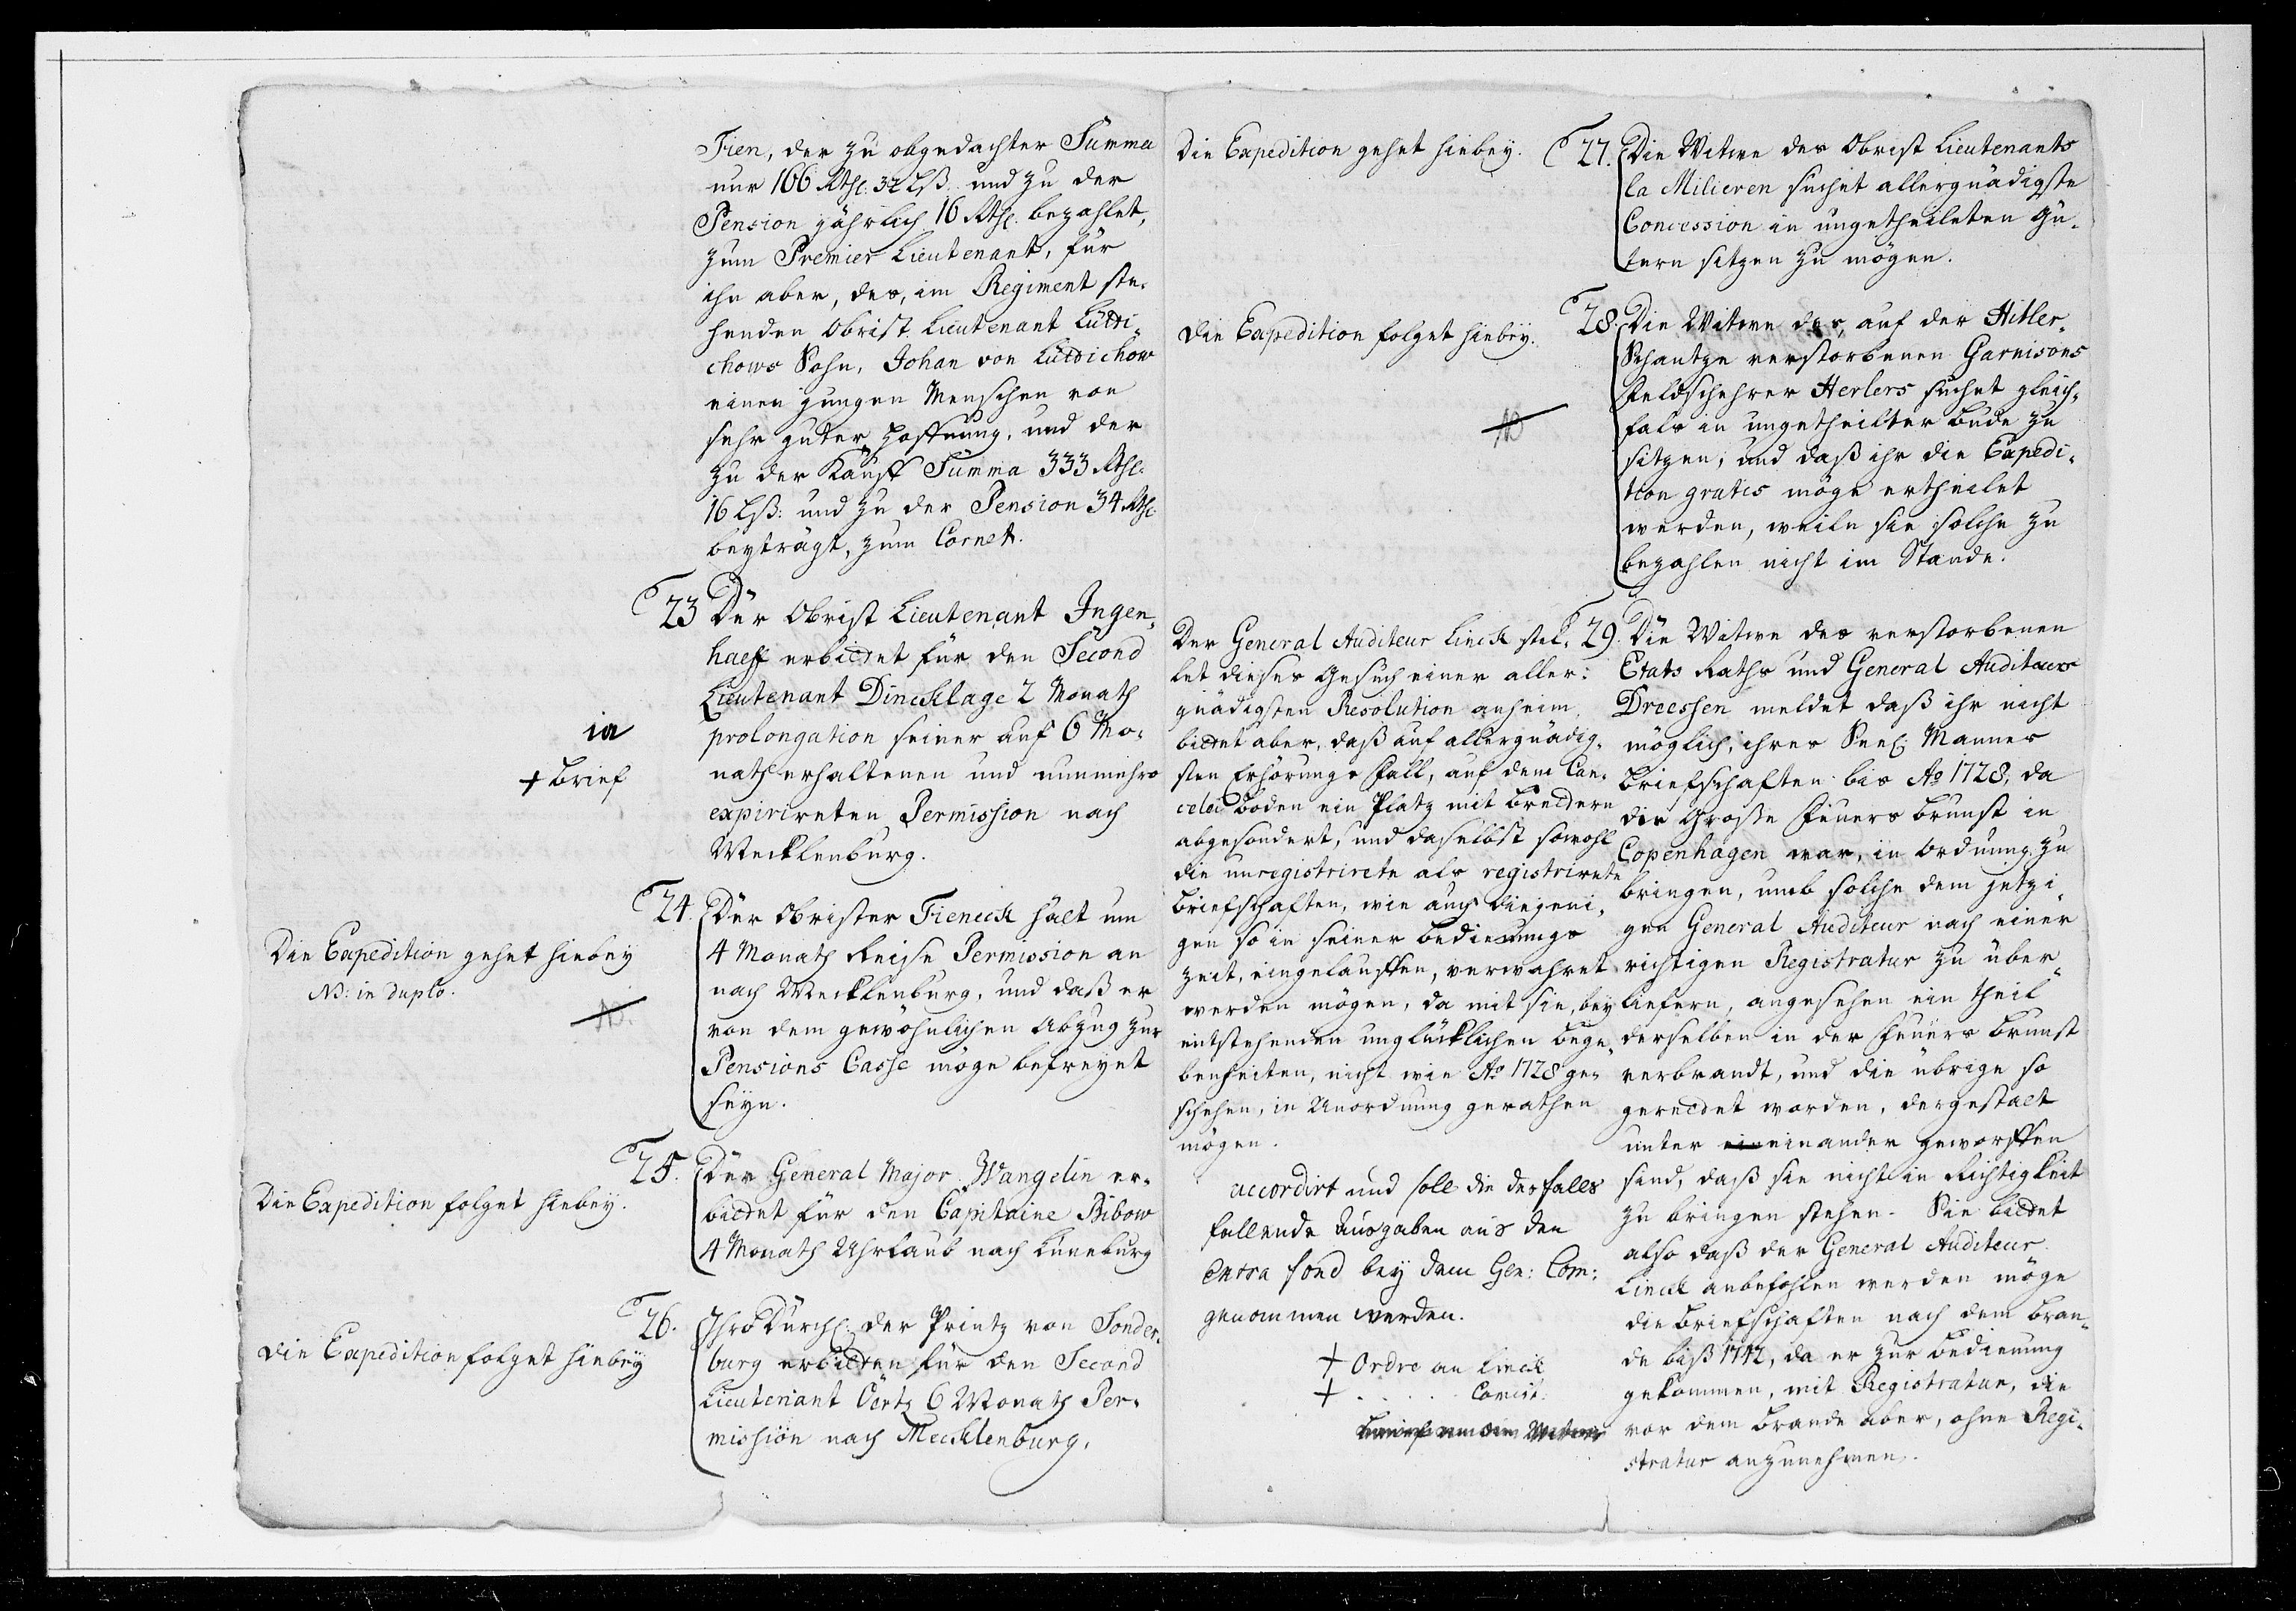 Tien, der zu obgedachter Summa
nur 166 Rthl. 32 Lß. und zu der
Pension jährlich 16 Rthl. bezahlet,
zum Premier Lieutenant, für
ihn aber, des, im Regiment ste-
henden Obrist Lieutenant Lütti-
chows Sohn, Johan von Lüttichow
einen jungen Menschen von
sehr guter Hoffnung, und der
zu der Kauff Summa 333 Rthl.
16 Lß: und zu der Pension 34 Rthl.
beyträgt, zum Cornet.
23 Der Obrist Lieutenant Ingen-
haeff erbittet für den Second
Lieutenant Dincklage 2 Monath
prolongation seiner auf 6 Mo-
nath erhaltenen und nunmehro
expirireten Permission nach
Mecklenburg.
ia
+ Brief
24. Der Obrister Fieneck hält um
4 Monath Reise Permission an
nach Mecklenburg, und daß er
von dem gewöhnlichen Abzug zur
Pensions Casse möge befreyet
seyn.
Die Expedition gehet hiebey
NB: in duplo.
25. Der General Major Wangelin er-
bittet für den Capitaine Bibow
4 Monath Uhrlaub nach Lüneburg
Die Expedition folget hiebey.
26. Ihro Durchl. der Printz von Sonder-
burg erbitten für den Second
Lieutenant Oertz 6 Monath Per-
mission nach Mecklenburg.
Die Expedition folget hiebey
Die Expedition gehet hiebey.
27. Die Witwe des Obrist Lieutenants
la Milieren suchet allergnädigste
Concession in ungetheileten Gü-
tern sitzen zu mögen.
Die Expedition folget hiebey.
28. Die Witwe des, auf der Hitler-
Schantze verstorbenen Garnisons
Feldscheherer Herlers suchet gleich-
fals in ungetheilter bude zu
sitzen, und daß ihr die Expedi-
tion gratis möge ertheilet
werden, weiln sie solche zu
bezahlen nicht im Stande.
Der General Auditeur Linck stel-
let dieses Gesuch einer aller-
gnädigsten Resolution anheim,
bittet aber, daß auf allergnädig-
sten Erhörungs Fall, auf dem Can-
celei Boden ein Platz mit Brettern
abgesondert, und daselbst sowohl
die unregistrirete als registrirete
Briefschafften, wie auch diejeni-
gen so in seiner Bedienungs
Zeit, eingelauffen, verwahret
werden mögen, da mit sie, bey
entstehenden unglücklichen bege-
benheiten, nicht wie Ao 1728 ge-
schehen, in Unordnung gerathen
mögen.
accordirt und soll die desfalls
fallende Ausgaben aus den
extra fond bey dem Gen: Com:
genommen werden.
+ Ordre an Linck
+ . . . . Comiss.
29. Die Witwe des verstorbenen
Etats Raths und General Auditeurs
Dreessen meldet daß ihr nicht
möglich, ihres Seel: Mannes
Briefschafften bis Ao 1728, da
die Große Feuers Brunst in
Copenhagen war, in Ordnung zu
bringen, umb solche dem jetzi-
gen General Auditeur nach einer
richtigen Registratur zu über-
liefern, angesehen ein theil
derselben in der Feuers Brunst
verbrandt, und die übrige so
gerettet worden, dergestalt
unter ein einander geworffen
sind, daß sie nicht in Richtigkeit
zu bringen stehen. Sie bittet
also daß der General Auditeur
Linck anbefohlen werden möge
die Briefschafften nach dem Bran-
de biß 1742, da er zur Bedienung
gekommen, mit Registratur, die
vor dem Brande aber, ohne Regi-
stratur anzunehmen.